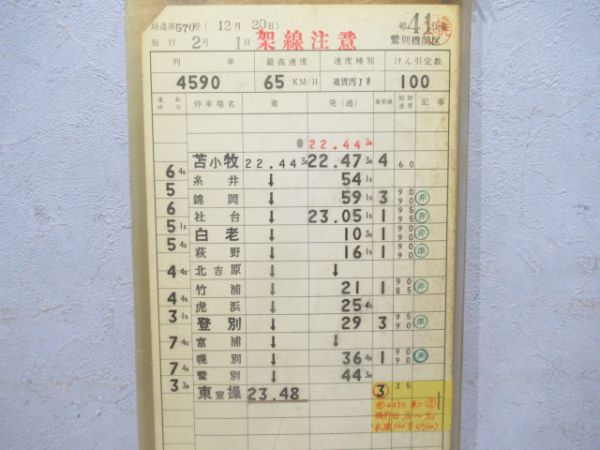 達第570号 (12月20日)
施行 2月 1日
架線注意
組 41
鷲別機関区
列 車 最高速度 速度種別 けん引定数
4590 65 KM/H 通貨丙 100
運転時分 停車場名 着 発(通) 着発線 制限速度 記事
22.44 30
苫小牧 22.44 30 22.47 30 4 60
6 45
糸井 ↓ 54 15
5
錦岡 ↓ 59 15 3 90 90
6
社台 ↓ 23.05 15 1 95 95
5 15
白老 ↓ 10 30 1 90 90
5 45
萩野 ↓ 16 15 1 90 90
北吉原 ↓ ↓
4 45
竹浦 ↓ 21 1 90 85
4 45
虎浜 ↓ 25
3 15
登別 ↓ 29 3 95 90
富浦 ↓ ↓
7 45
幌別 ↓ 36 45 1 90 90
7 45
鷲別 ↓ 44 30
3 30
東室操 23.48 ③ 35